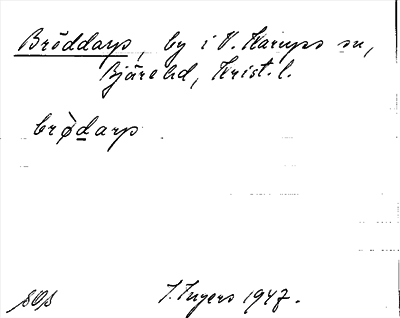 Bröddarp, by i V. Karups sn,
Bjäre hd, Krist. l.
brø̀darp
SOS
I. Ingers 1947.